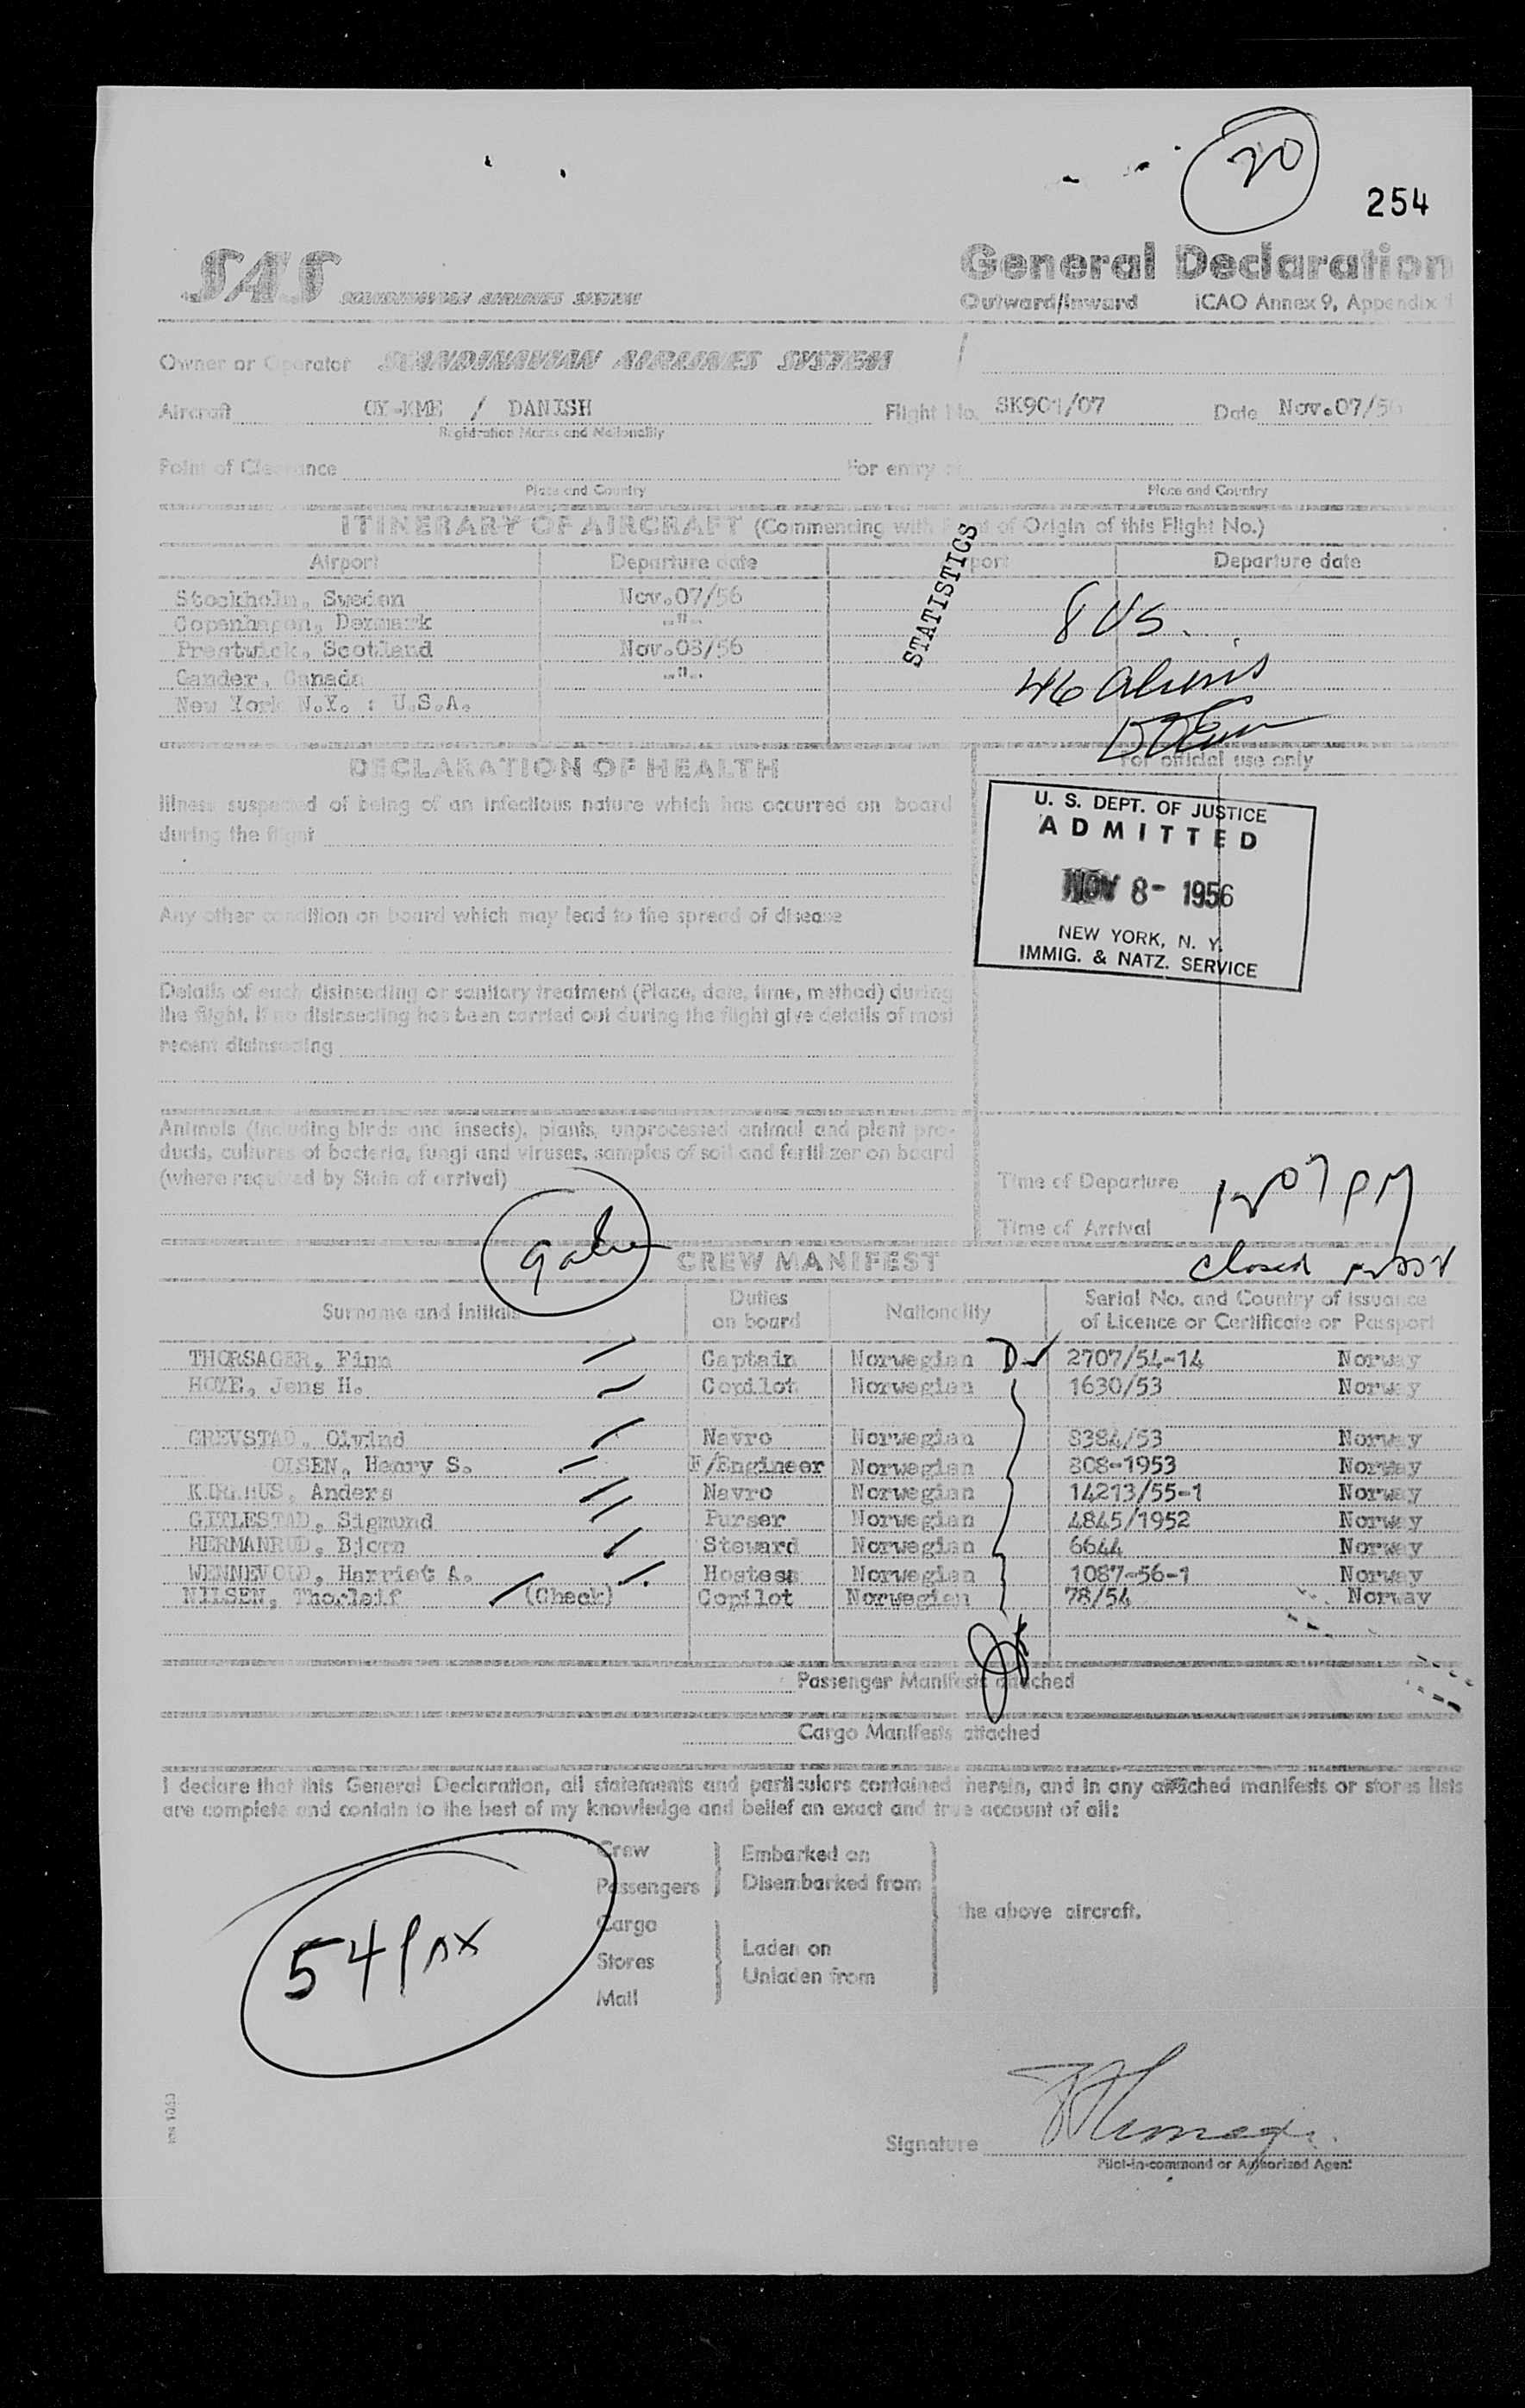 20
254
SAS SCANDINAVIAN AIRLINES SYSTEM
General Declaration
Outward/Inward ICAO Annex 9, Appendix 1
Owner or Operator SCANDINAVIAN AIRLINES SYSTEM
Aircraft OY-KME / DANISH Flight No. SK901/07 Date Nov.07/56
Registration Marks and Nationality
Point of Clearance For entry at
Place and Country Place and Country
ITINERARY OF AIRCRAFT (Commencing with Point of Origin of this Flight No.)
Airport Departure date Airport Departure date
STATISTICS
Stockholm, Sweden Nov.07/56
Copenhagen, Denmark -"-
Prestwick, Scotland Nov.08/56
Gander, Canada -"-
New York N.Y. : U.S.A.
8 US.
46 aliens
DECLARATION OF HEALTH
For official use only
Illness suspected of being of an infectious nature which has occurred on board
during the flight
Any other condition on board which may lead to the spread of disease
Details of each disinsecting or sanitary treatment (Place, date, time, method) during
the flight. If no disinsecting has been carried out during the flight give details of most
recent disinsecting
U. S. DEPT. OF JUSTICE
ADMITTED
NOV 8- 1956
NEW YORK, N. Y.
IMMIG. & NATZ. SERVICE
Animals (including birds and insects), plants, unprocessed animal and plant pro-
ducts, cultures of bacteria, fungi and viruses, samples of soil and fertilizer on board
(where required by State of arrival)
Time of Departure 1207 PM
Time of Arrival
closed
9
CREW MANIFEST
Surname and Initials Duties on board Nationality Serial No. and Country of issuance of Licence or Certificate or Passport
THORSAGER, Finn Captain Norwegian D 2707/54-14 Norway
HOYE, Jens H. Copilot Norwegian 1630/53 Norway
GREVSTAD, Oivind Navro Norwegian 8384/53 Norway
OLSEN, Henry S. F/Engineer Norwegian 808-1953 Norway
Anders Navro Norwegian 14213/55-1 Norway
GITLESTAD, Sigmund Purser Norwegian 4845/1952 Norway
HERMANRUD, Bjorn Steward Norwegian 6644 Norway
WENNEVOLD, Harriet A. Hostess Norwegian 1087-56-1 Norway
NILSEN, Thorleif (Check) Copilot Norwegian 78/54 Norway
Passenger Manifests attached
Cargo Manifests attached
I declare that this General Declaration, all statements and particulars contained herein, and in any attached manifests or stores lists
are complete and contain to the best of my knowledge and belief an exact and true account of all:
Crew Embarked on
Passengers Disembarked from
the above aircraft.
Cargo
Stores Laden on
Mail Unladen from
54 pax
Signature
Pilot-in-command or Authorized Agent